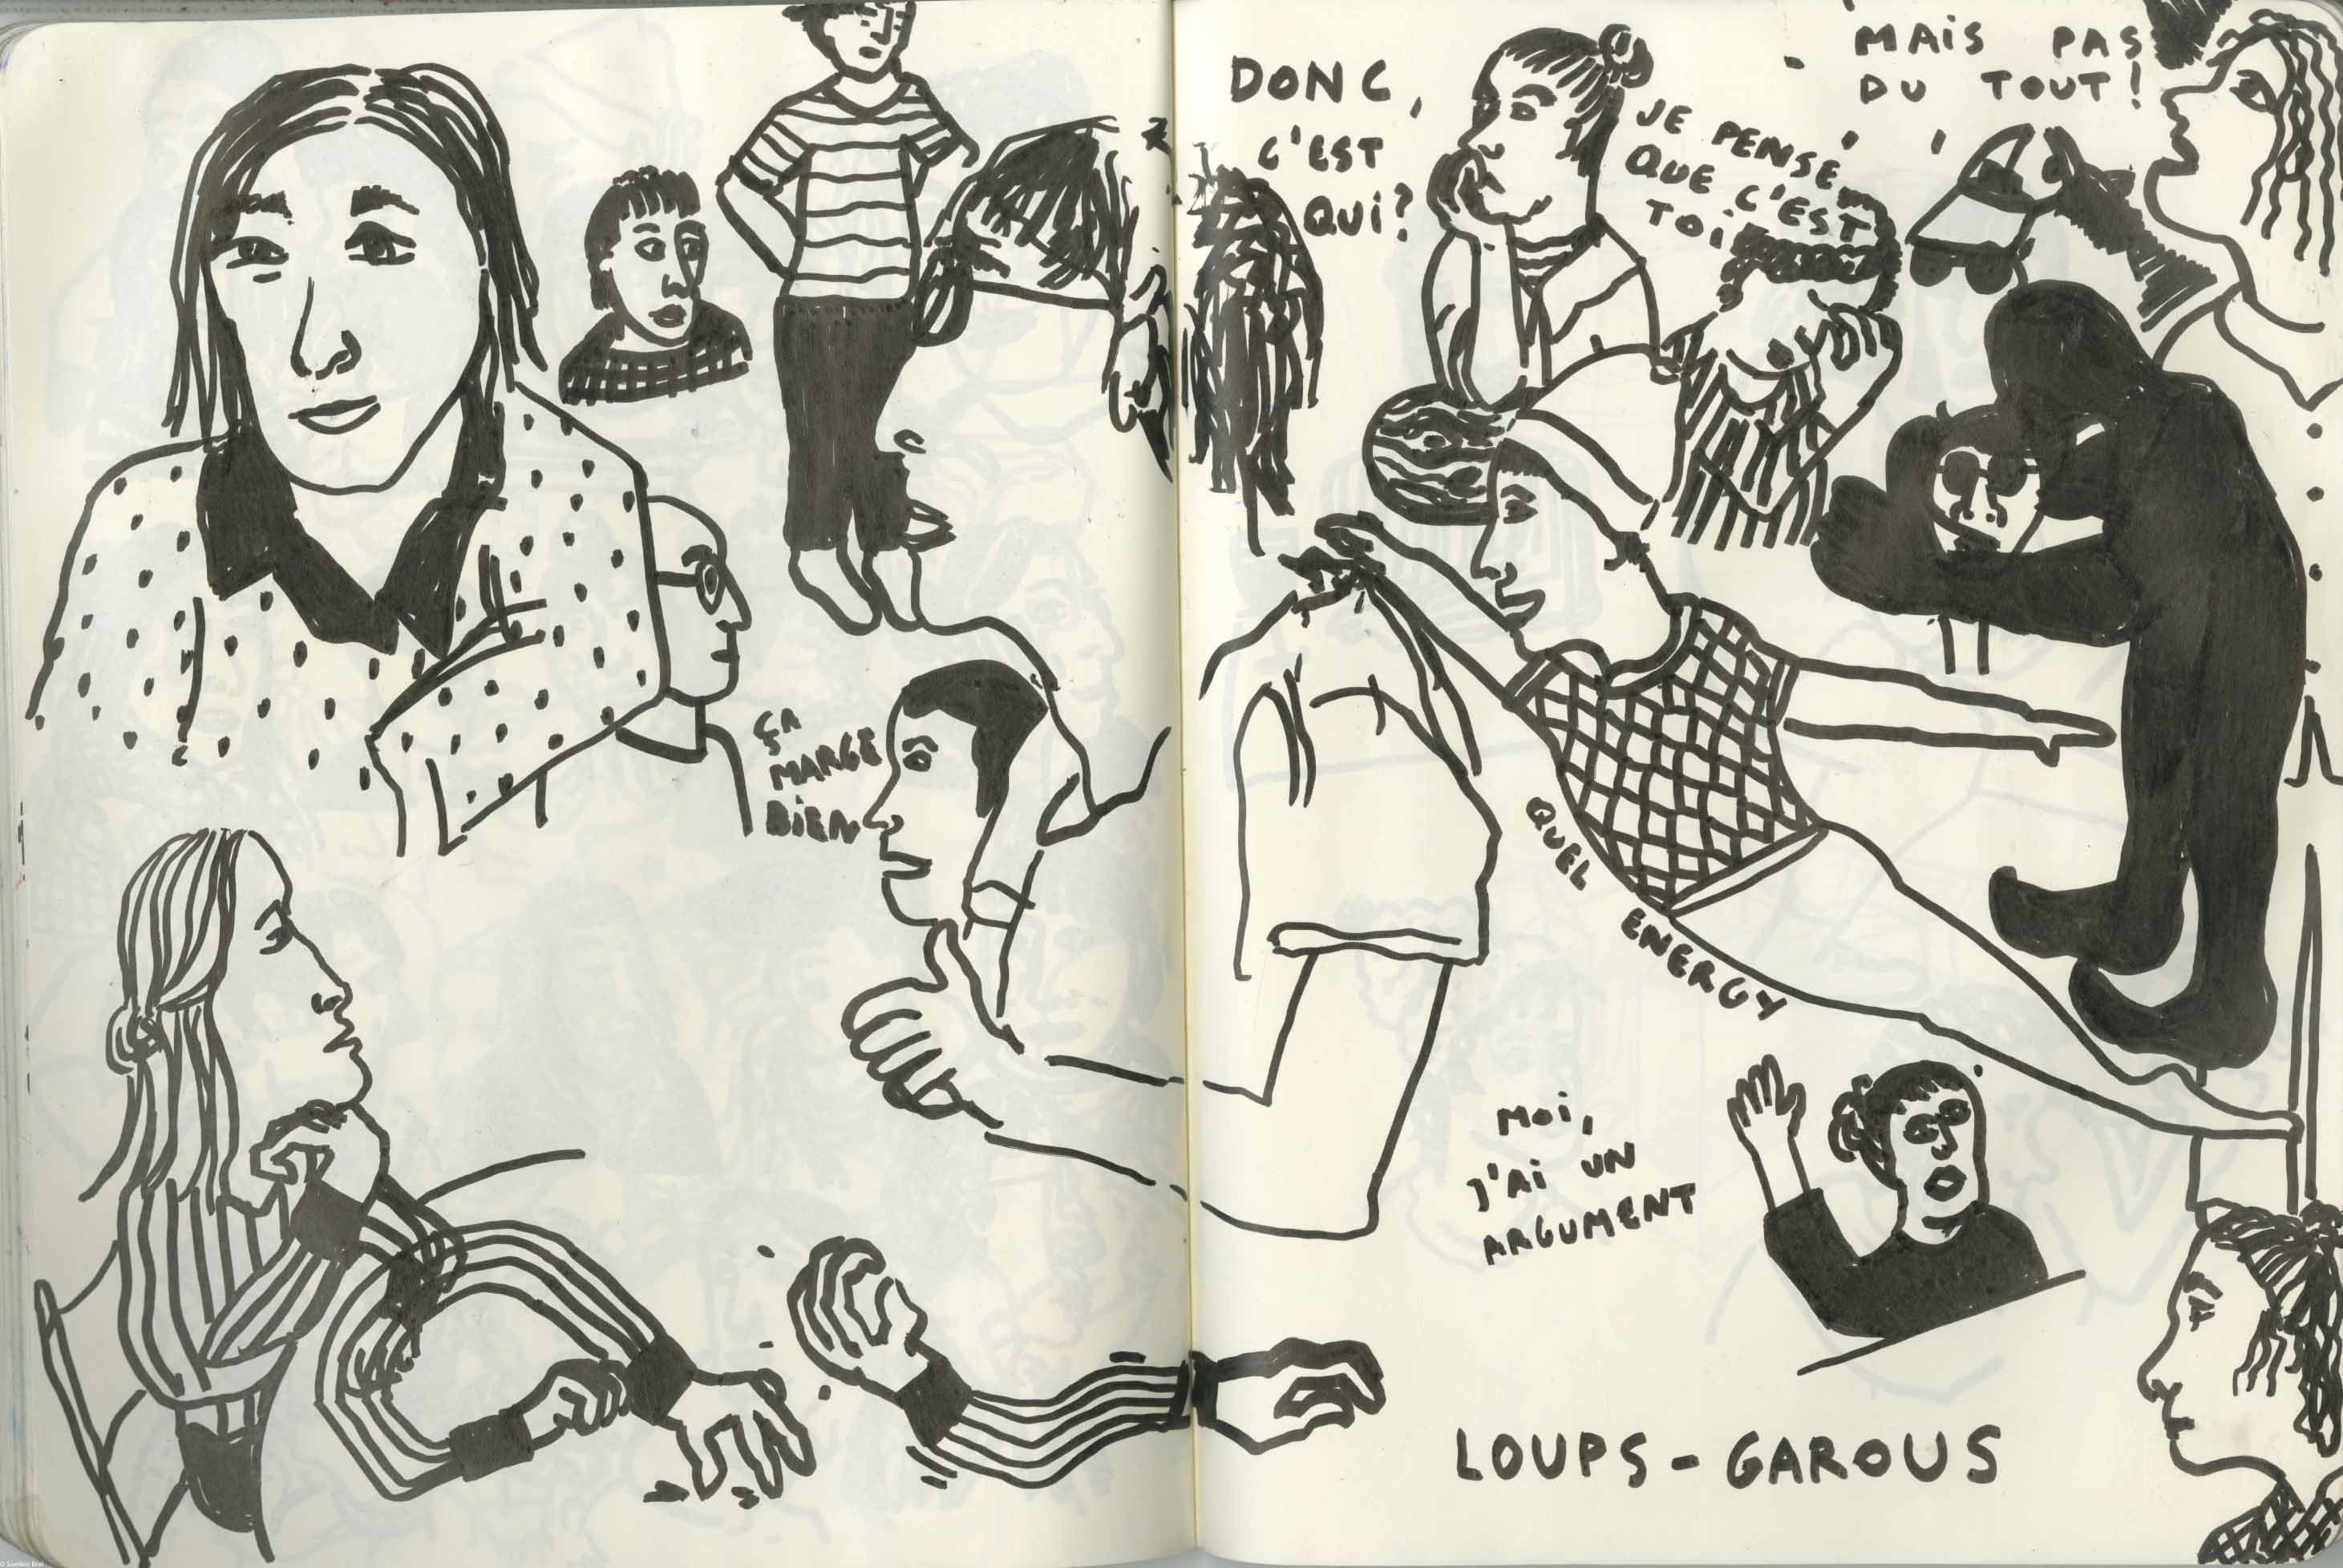 ÇA
MARCE
BIEN
DONC,
C'EST
QUI?
JE PENSE
QUE C'EST
TOI
- MAIS PAS
DU TOUT!
QUEL ENERGY
MOI,
J'AI UN
ARGUMENT
LOUPS-GAROUS